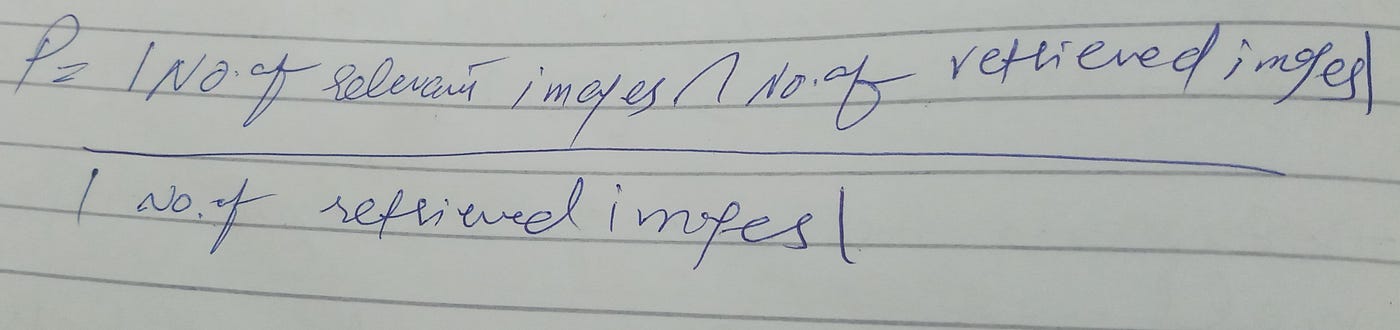 P= |No. of relevant images ∩ No. of retrieved images|
| No. of retrieved images|